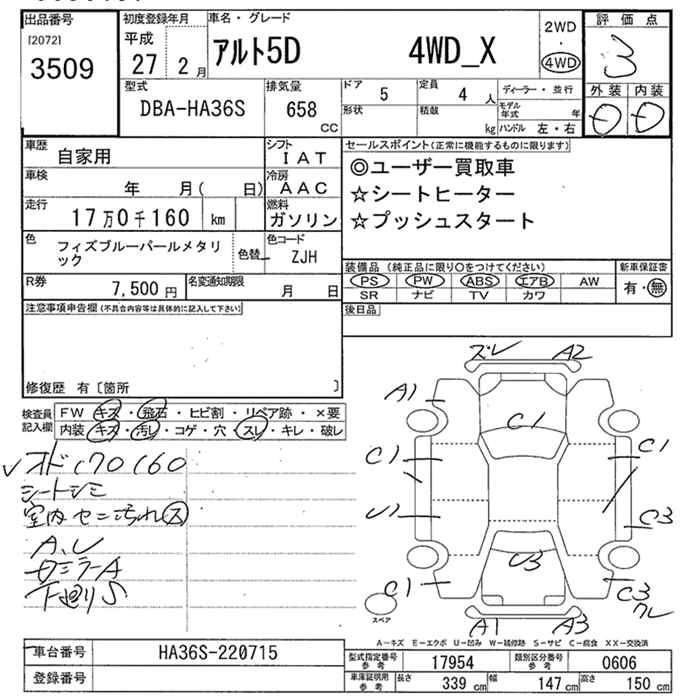 出品番号
[2072]
3509
初度登録年月
平成
27 2 月
車名・グレード
アルト5D 4WD_X
2WD
・
4WD
評価点
3
外装 内装
型式
DBA-HA36S
排気量
658 CC
ドア 5
定員 4 人
ディーラー・並行
形状
積載 kg
モデル年式 年
ハンドル 左・右
車歴
自家用
シフト
IAT
車検
年 月( 日)
冷房
AAC
走行
17万0千160 km
燃料
ガソリン
色
フィズブルーパールメタリック
色替
色コード
ZJH
R券
7,500 円
名変通知期限
月 日
セールスポイント(正常に機能するものに限ります)
◎ユーザー買取車
☆シートヒーター
☆プッシュスタート
装備品(純正品に限り○をつけてください)
PS PW ABS エアB AW
SR ナビ TV カワ
新車保証書
有・無
後日品
注意事項申告欄(不具合内容等は具体的に記入して下さい)
修復歴 有〔箇所 〕
検査員記入欄
FW キズ・飛石・ヒビ割・リペア跡・×要
内装 キズ・汚レ・コゲ・穴・スレ・キレ・破レ
オド170160
シートシミ
室内セニ汚れ ス
下廻りS
ズレ A2
A1
C1
C1 C1
U1
C3
U3
C1
C3
クレ
A1 A3
スペア
A－キズ E－エクボ U－凹み W－補修跡 S－サビ C－腐食 XX－交換済
車台番号 HA36S-220715
登録番号
型式指定番号参考 17954
類別区分番号参考 0606
車庫証明用参考 長さ 339 cm 幅 147 cm 高さ 150 cm